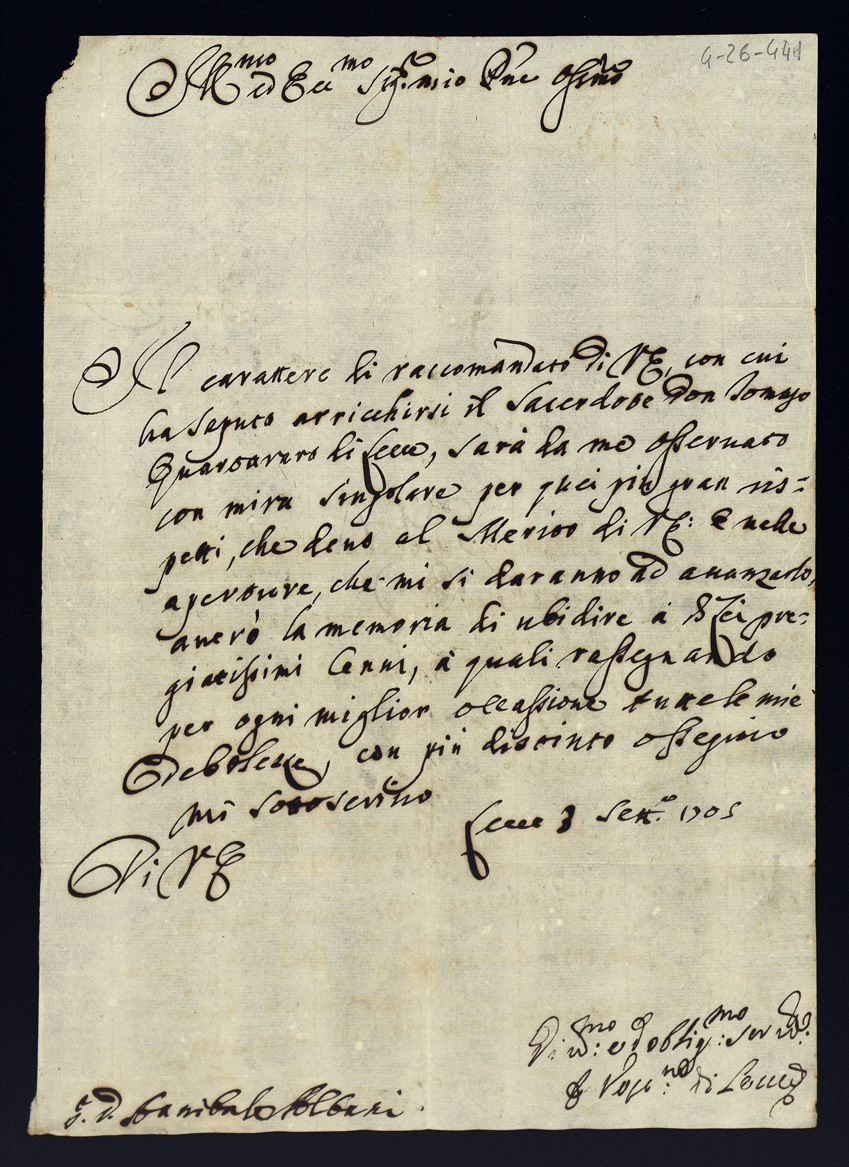 4-26-441
Ill.mo ed Ecc.mo Sig.re mio P̃ne Oss.mo
Il carattere di raccomandato di VE, con cui
ha saputo arricchirsi il Sacerdote Don Tomaso
Quartararo di Lecce, sarà da me osseruato
con mira singolare per quei più gran ris=
petti, che deuo al Merito di VE: E nelle
aperture, che mi si daranno ad auanzarlo,
auerò la memoria di ubidire a Suoi pre=
giatissimi Cenni, à quali rassegnando
per ogni miglior occassione tutte le mie
Debolezze, con più distinto ossequio
mi sottoscriuo
Lecce 3 Sett.e 1705
Di VE
Di u.: mo e d oblig.: mo ser u.:
F Vesc.: di Lecce
S. D. Hanibale Albani.